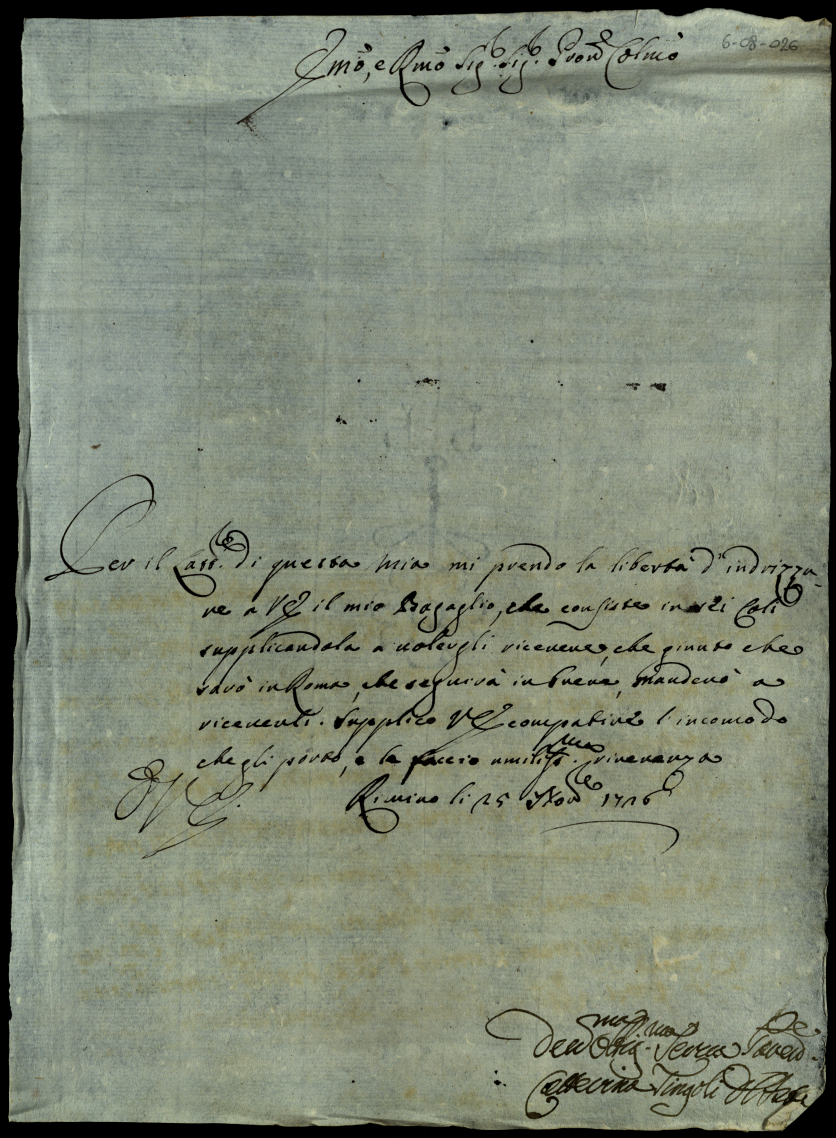 6-08-026
Jll̃mo, e Rm̃o Sig.r Sig.r Pron̄ Col̃mo
Per il Lass.re di questa mia mi prendo la libertà d'indrizza-
re a VS il mio Bagaglio, che consiste in sei Coli
supplicandola a volergli ricevere, che giunto che
sarò in Roma, che seguirà in breve, manderò a
riceverli. Supplico VS compatire l'incomodo
che gli porto, e le faccio umiliss.ma riverenza
D VS. Rimino li 25 Nov.re 1726
Dev.ma Oblig.ma Serva
Catterina Tingoli